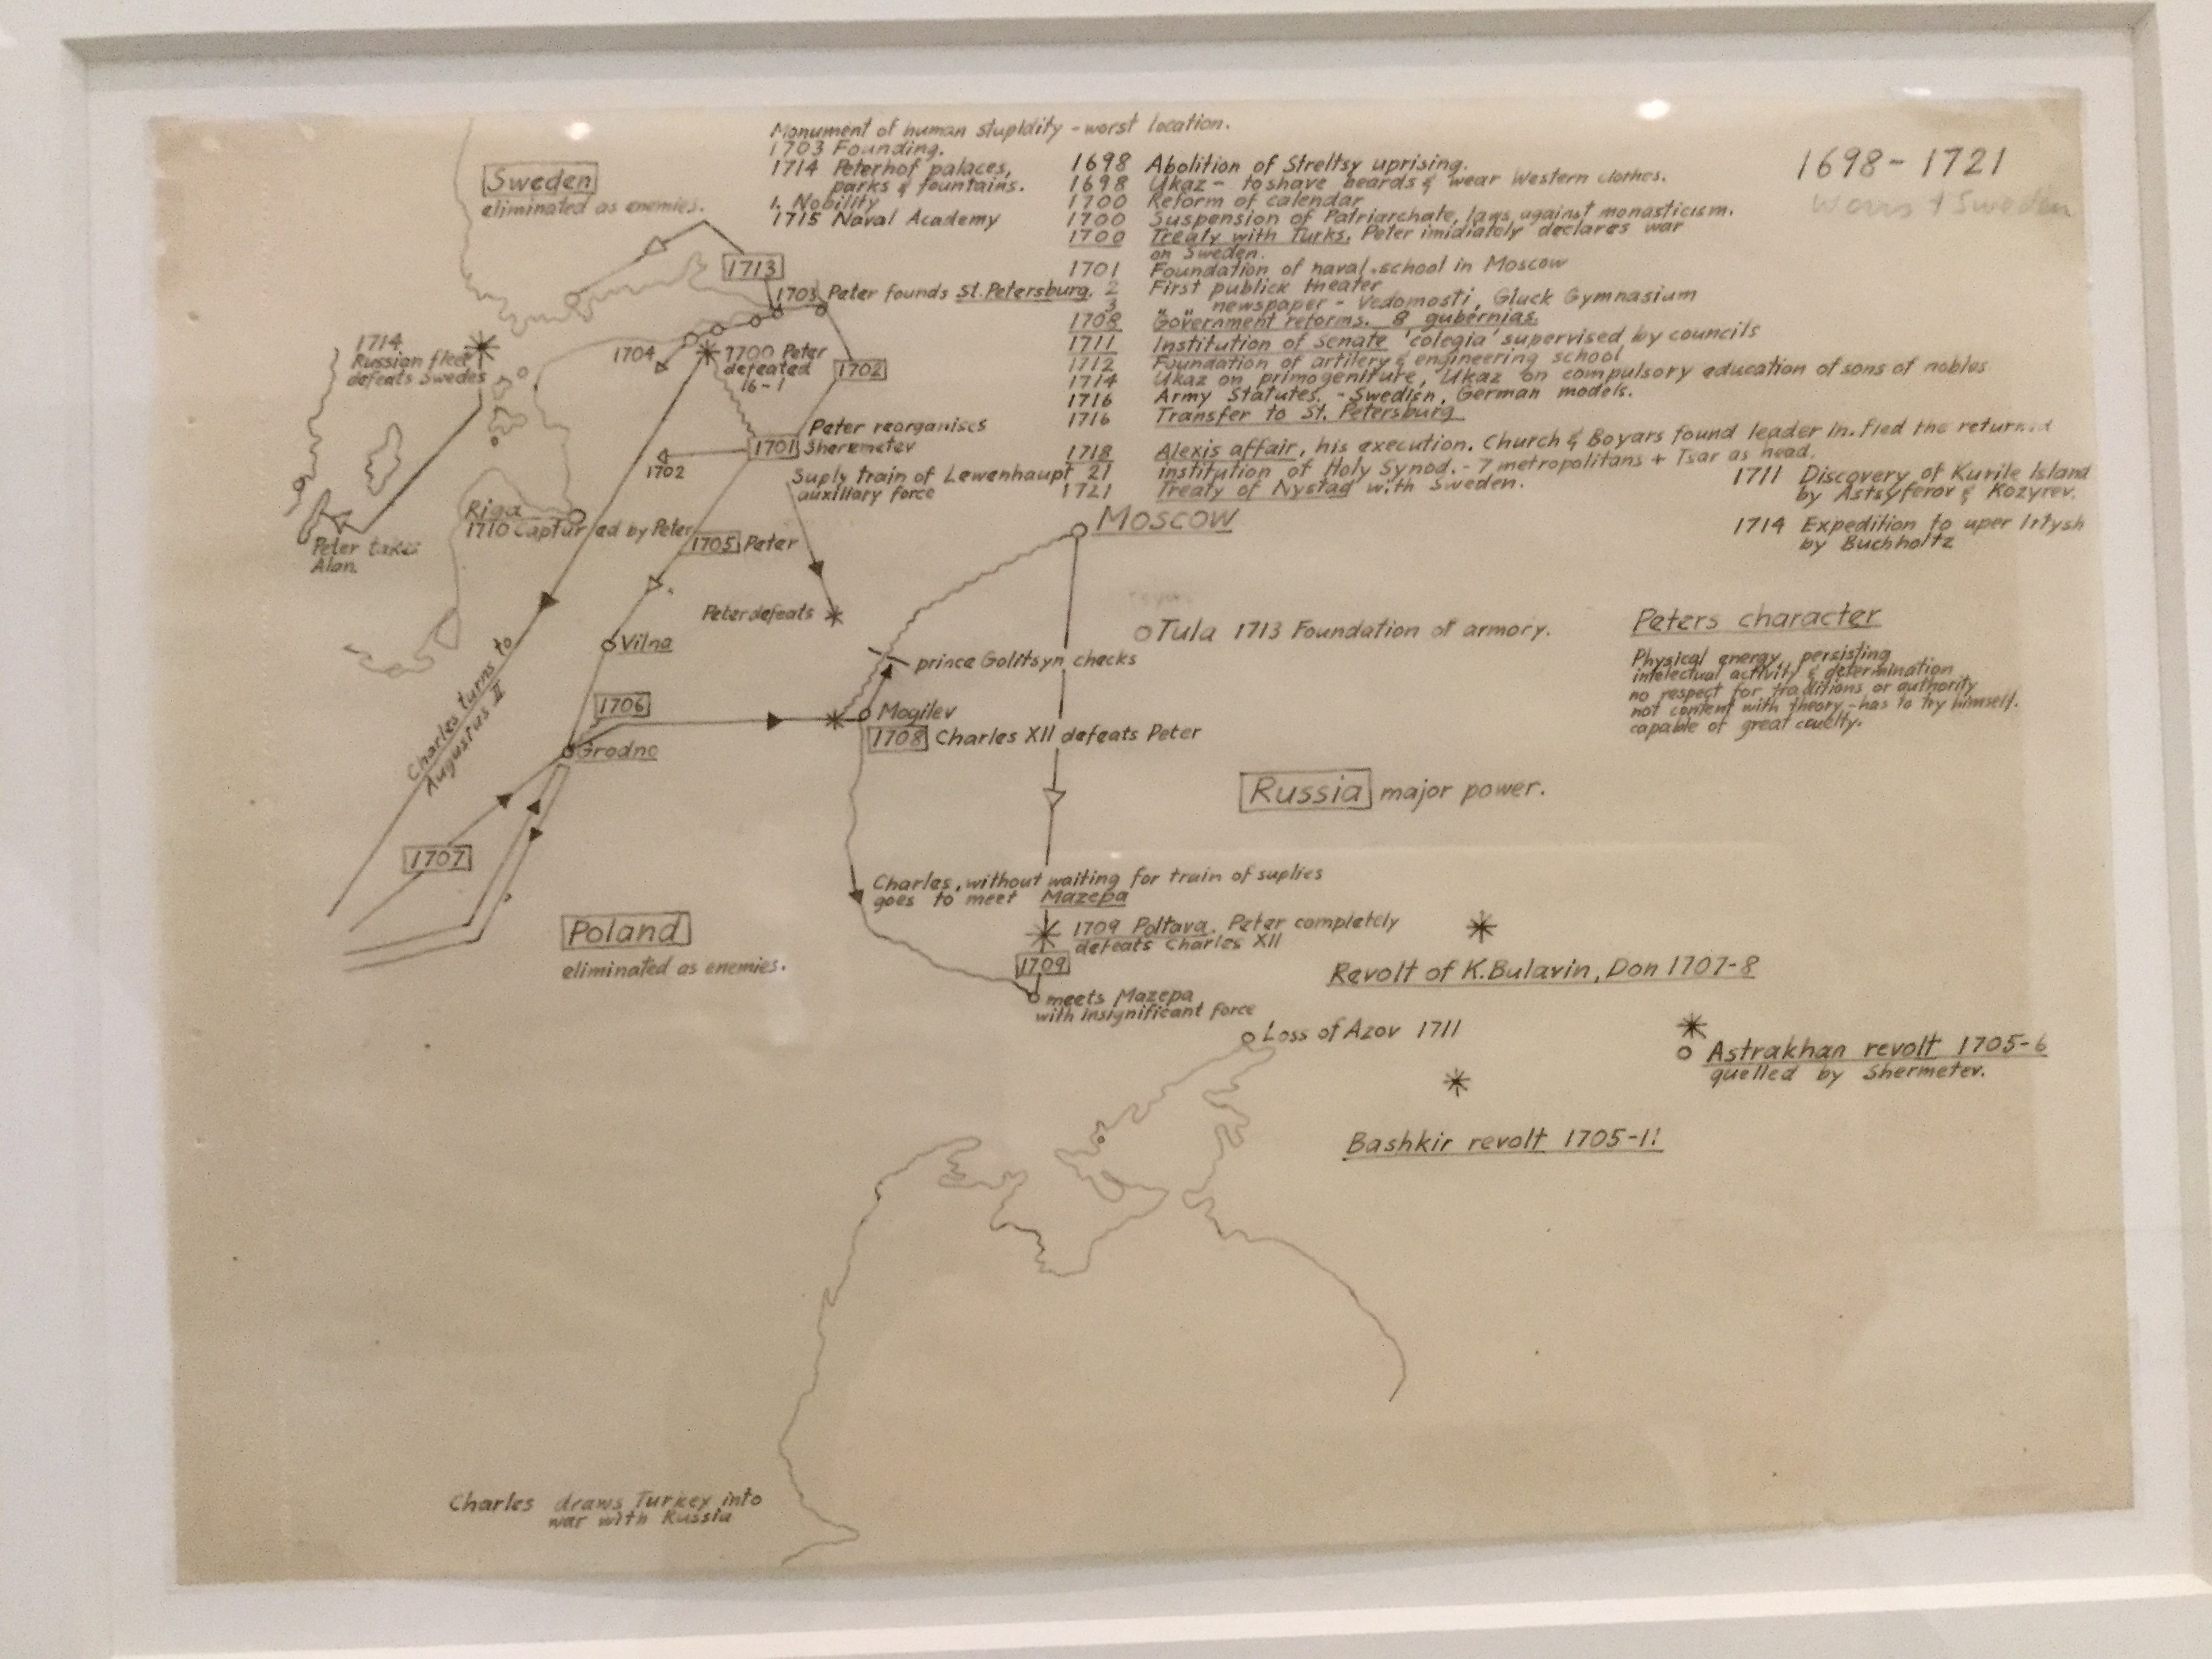 Monument of human stupidity - worst location.
1703 Founding.
1714 Peterhof palaces,
parks & fountains.
1. Nobility
1715 Naval Academy
1698 - 1721
Wars + Sweden
1698 Abolition of Streltsy uprising.
1698 Ukaz - to shave beards & wear Western clothes.
1700 Reform of calendar
1700 Suspension of Patriarchate, laws against monasticism.
1700 Treaty with Turks. Peter imidiately declares war
on Sweden.
1701 Foundation of naval school in Moscow
2 First publick theater
3 " " newspaper - Vedomosti, Gluck Gymnasium
1708 Government reforms. 8 gubernias.
1711 Institution of Senate 'colegia' supervised by councils
1712 Foundation of artilery & engineering school
1714 Ukaz on primogeniture, Ukaz on compulsory education of sons of nobles
1716 Army Statutes. - Swedish, German models.
1716 Transfer to St. Petersburg
1718 Alexis affair, his execution. Church & Boyars found leader in. fled the returned
21 institution of Holy Synod. - 7 metropolitans + Tsar as head.
1721 Treaty of Nystad with Sweden.
1711 Discovery of Kurile Island
by Astsyferov & Kozyrev.
1714 Expedition to uper Irtysh
by Buchholtz
Sweden
eliminated as enemies.
1713
1703 Peter founds St. Petersburg.
1714
Russian fleet
defeats Swedes
1704
1700 Peter
defeated
16-1
1702
Peter reorganises
1701 Sheremetev
1702
Suply train of Lewenhaupt
auxillary force
Riga
1710 Captured by Peter
Peter takes
Alan.
1705 Peter
MOSCOW
Peter defeats
Tula 1713 Foundation of armory.
Vilna
prince Golitsyn checks
Peters character
Physical energy, persisting
intelectual activity & determination
no respect for traditions or authority
not content with theory - has to try himself.
capable of great cruelty.
Charles turns to
Augustus II
1706
Mogilev
1708 Charles XII defeats Peter
Grodno
Russia major power.
1707
Charles, without waiting for train of suplies
goes to meet Mazepa
Poland
eliminated as enemies.
1709 Poltava. Peter completely
defeats Charles XII
1709
meets Mazepa
with insignificant force
Revolt of K. Bulavin, Don 1707-8
Loss of Azov 1711
Astrakhan revolt 1705-6
quelled by Shermetev.
Bashkir revolt 1705-11
Charles draws Turkey into
war with Russia